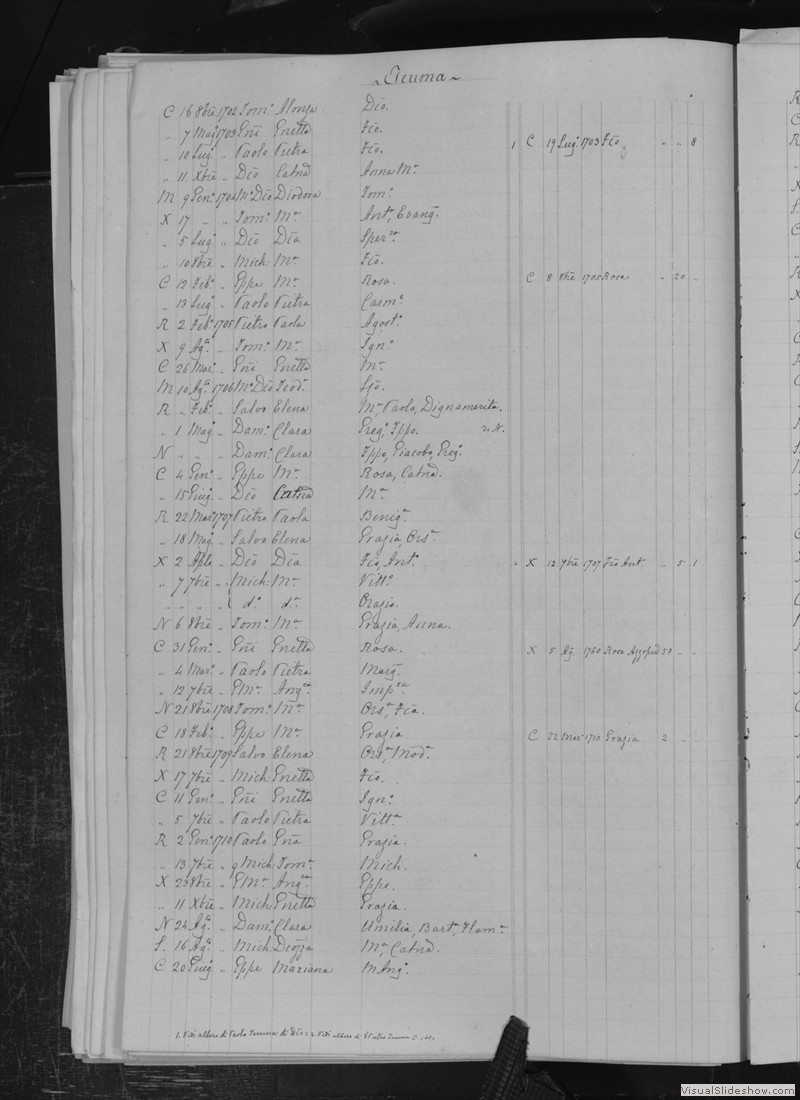 ~ Teuma ~
C 16 8bre 1702 Tom.o Alonza Dio.
„ 7 Mag.o 1703 Gni Gnetta Fco.
„ 10 Lug.o „ Paolo Pietra Fco. 1 C 19 Lug.o 1703 Fco „ „ 8
„ 11 Xbre „ Dio Catna Anna Ma.
M 9 Gen.o 1704 Mo Dio Diodora Tom.o
X 17 „ „ Tom.o Ma. Anta, Evang.
„ 5 Lug.o „ Dio Dia Sper.za
„ 10 8bre „ Mich: Ma. Fco.
C 12 Feb.o „ Gppe Ma. Rosa. C 8 8bre 1705 Rosa „ 20 „
„ 13 Lug.o „ Paolo Pietra Carm.o
R 2 Feb.o 1705 Pietro Paola Agost.o
X 9 Ag.o „ Tom.o Ma. Ign.o
C 26 Mar.o „ Gni Gnetta Ma.
M 10 Ag.o 1706 Mo Dio Teod.a
R „ Feb.o „ Salvo Elena Ma Paola, Dignamerita.
„ 1 Mag.o „ Dam.o Clara Greg.o, Fppo. v. N.
N „ „ „ Dam.o Clara Fppo, Giacobo, Greg.o
C 4 Gen.o „ Gppe Ma. Rosa, Catna.
„ 15 Giug.o „ Dio Catna Ma.
R 22 Mar.o 1707 Pietro Paola Benig.a
„ 18 Mag.o „ Salvo Elena Grazia, Ors.a
X 2 Aple „ Dio Dia Fco, Ant.o 2 X 12 7bre 1707 Fco Ant.o „ 5 1
„ 7 7bre „ Mich: Ma. Vitt.o
„ „ „ „ d.o d.a Orazio.
N 6 8bre „ Tom.o Ma. Grazia, Anna.
C 31 Gen.o „ Gni Gnetta Rosa. X 5 Ag.o 1760 Rosa 50 „ „
„ 4 Mar.o „ Paolo Pietra Marg.
„ 12 7bre „ GMa. Ang.ca Imp.za
N 21 8bre 1708 Tom.o Ma. Ors.a, Fca.
C 18 Feb.o „ Gppe Ma. Grazia C 22 Mar.o 1710 Grazia 2 „ „
R 21 8bre 1709 Salvo Elena Ors.a, Mod.a
X 17 7bre „ Mich: Gnetta Fco.
C 11 Gen.o „ Gni Gnetta Ign.o
„ 5 7bre „ Paolo Pietra Vitta.
R 2 Gen.o 1710 Paolo Gna Grazia.
„ 13 7bre „ q Mich: Tom.a Mich.
X 23 8bre „ GMa. Ang.ca Gppe.
„ 11 Xbre „ Mich: Gnetta Grazia.
N 24 Ag.o „ Dam.o Clara Umilia, Bart.a, Flam.a
S. 16 Ag.o „ Mich: Ma, Catna.
C 20 Giug.o „ Gppe Mariana MAng.o
1. Vedi albero di Paolo Teuma di Dio = 2 Vedi albero di Pietro Teuma
VisualSlideshow.com